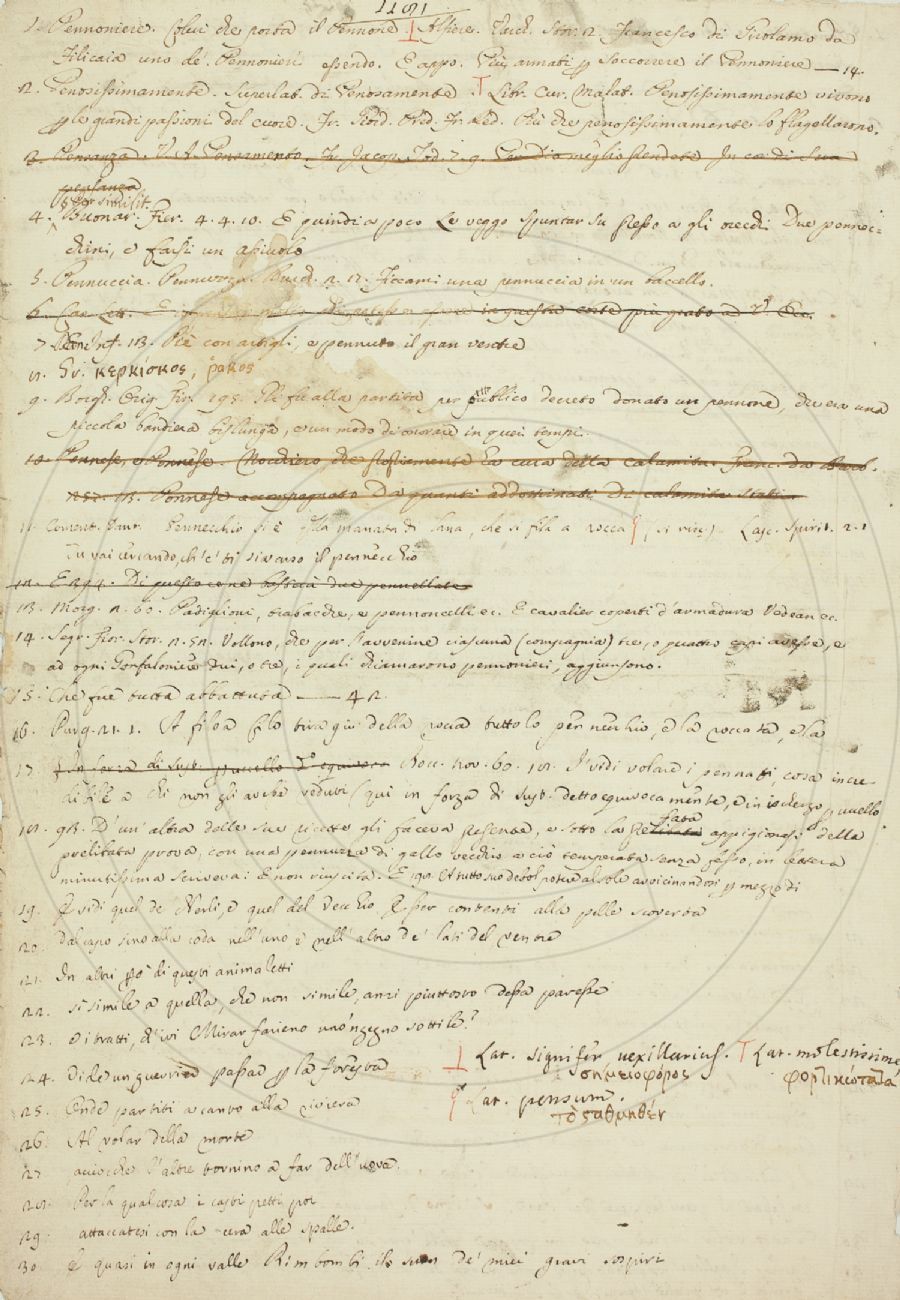 1181
1. Pennoniere. Colui che porta il Pennone ⊥ Alfiere. Varch. Stor. 2. Francesco di Girolamo da
Filicaia uno de' Pennonieri essendo. E appo. Più armati p soccorrere il Pennoniere — 14.
2. Penosissimamente. Superlat. di Penosamente T Libr. Cur. Malat. Penosissimamente vivono
p le grandi passioni del cuore. Fr. Giord. Pred. Più che penosissimamente lo flagellarono.
3. Pensanza. V. A. Pensamento. Fr. Jacop. Tod. 7. 9. meglio In sua
pesanza
Per similit.
4. Buonar. Fier. 4. 4. 10. E quindi a poco Le veggo spuntar su presso a gli orecchi Due pennoc-
chini, e farsi un assivolo
5. Pennuccia. Pennuzza. Burch. 2. 17. Ficcami una pennuccia in un baccello.
6. Car. Lett. E in questa corte più grato ad V. Ecc.
7. Inf. 13. Piè con artigli, e pennuto il gran ventre
8. Gr. κερκίσκος, ῥάκος
9. Borgh. Orig. Fir. 295. Gli fu alla partita per publico decreto donato un pennone, che era una
piccola bandiera bislunga, e un modo di onorare in quei tempi.
10. Pennese, e Pennése. Nocchiero, che la cura della calamita. Franc. da Barb.
257. 13. Pennese accompagnato Da quanti addottrinati Di calamita
11. Coment. Laur. Pennecchio si è quella manata di lana, che si fila a rocca Lasc. Spirit. 2. 1
Tu vai cercando, ch'e' ti sia arso il pennecchio
12. E 394. Di questo due pennellate
13. Morg. 2. 60. Padiglioni, trabacche, e pennoncelli ec. E cavalier coperti d'armadura Vedean ec.
14. Segr. Fior. Stor. 2. 52. Vollono, che per l'avvenire ciascuna (compagnia) tre, o quattro capi avesse, e
ad ogni Gonfaloniere dui, o tre, i quali chiamarono pennonieri, aggiunsono.
15. Che fue tutta abbattuta — 42.
16. Purg. 21. 1. A filo a filo tira giù della rocca tutto lo pennecchio, e la roccata, e la
17. In forza di Sust. p uccello d' equivoco Bocc. nov. 60. 18. I' vidi volare i pennati, cosa incre-
dibile a chi non gli avesse veduti (qui in forza di Sust. detto equivocamente, e in ischerzo p uccello
18. 98. D'un'altra delle sue ricette gli faceva presente, e sotto la fatta appigionasi della
prelibata prova, con una pennuzza di gallo vecchio a ciò temperata senza fesso, in lettera
minutissima scriveva: E non riuscita. E 198. A tutto suo debol potere al sole avvicinandosi p mezzo di
19. E vidi quel de' Nerli, e quel del Vecchio Esser contenti alla pelle scoverta
20. Dal capo sino alla coda nell'uno e nell'altro de' lati del ventre
21. In altri però di questi animaletti
22. si simile a quella, che non simile, anzi piuttosto dessa paresse
23. e i tratti, ch'ivi Mirar farieno uno 'ngegno sottile?
24. di che un guerrier passa p la foresta
25. Onde partiti accanto alla riviera
26. Al volar della morte
27. acciocche l'altre tornino a far dell'uova.
28. Per la qual cosa i casti petti poi
29. attaccatesi con la cera alle spalle.
30. E quasi in ogni valle Rimbombi il suon de' miei gravi sospiri
⊥ Lat. signifer, vexillarius. T Lat. molestissime
σημειοφόρος φορτικώτατα
Lat. pensum.
τὸ σταθμηθέν